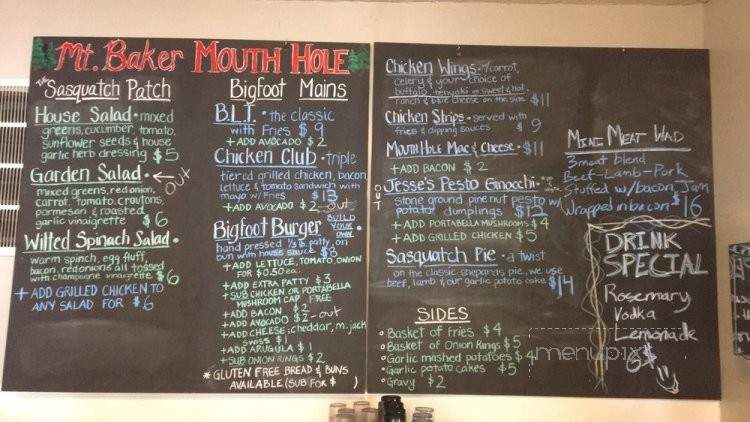 Mt. Baker Mouth Hole
The Sasquatch Patch
House Salad • mixed
greens, cucumber, tomato,
sunflower seeds & house
garlic herb dressing $5
Garden Salad • ← OUT
mixed greens, red onion,
carrot, tomato, croutons,
parmesan & roasted
garlic vinaigrette $6
Wilted Spinach Salad •
warm spinch, egg fluff,
bacon, red onions all tossed
with champagne vinaigrette $6
+ ADD GRILLED CHICKEN TO
ANY SALAD FOR $6
Bigfoot Mains
B.L.T. • the classic
with Fries $9
+ ADD AVOCADO $2
Chicken Club • triple
tiered grilled chicken, bacon,
lettuce & tomato sandwich with
mayo w/ Fries $13
+ ADD AVOCADO $2 - out
Bigfoot Burger BUILD YOUR OWN
hand pressed 1/3 lb. patty on
bun with house sauce $8
+ ADD LETTUCE, TOMATO, ONION
for $0.50 ea.
+ ADD EXTRA PATTY $3
+ SUB CHICKEN OR PORTABELLA
MUSHROOM CAP FREE
+ ADD BACON $2
+ ADD AVOCADO $2 - out
+ ADD CHEESE: cheddar, m.jack
swiss $1
+ ADD ARUGULA $1
+ SUB ONION RINGS $2
* GLUTEN FREE BREAD & BUNS
AVAILABLE (SUB FOR $ )
Chicken Wings • w/ carrot,
celery & your choice of
buffalo, teriyaki or sweet & hot.
ranch & blue cheese on the side $11
Chicken Strips • served with
fries & dipping sauces $9
Mouth Hole Mac & Cheese • $11
+ ADD BACON $2
OUT
Jesse's Pesto Ginocchi •
stone ground pine nut pesto w/
potato dumplings $12
+ ADD PORTABELLA MUSHROOMS $4
+ ADD GRILLED CHICKEN $5
Sasquatch Pie • a twist
on the classic shepards pie, we use
beef, lamb & our garlic potato cake $14
SIDES
• Basket of Fries $4
• Basket of Onion Rings $5
• Garlic mashed potatoes $4
• Garlic potato cakes $5
• Gravy $2
Mini Meat Wad
3 meat blend
Beef-Lamb-Pork
Stuffed w/ bacon Jam
Wrapped in bacon $16
DRINK
SPECIAL
Rosemary
Vodka
Lemonade
6$
menupix